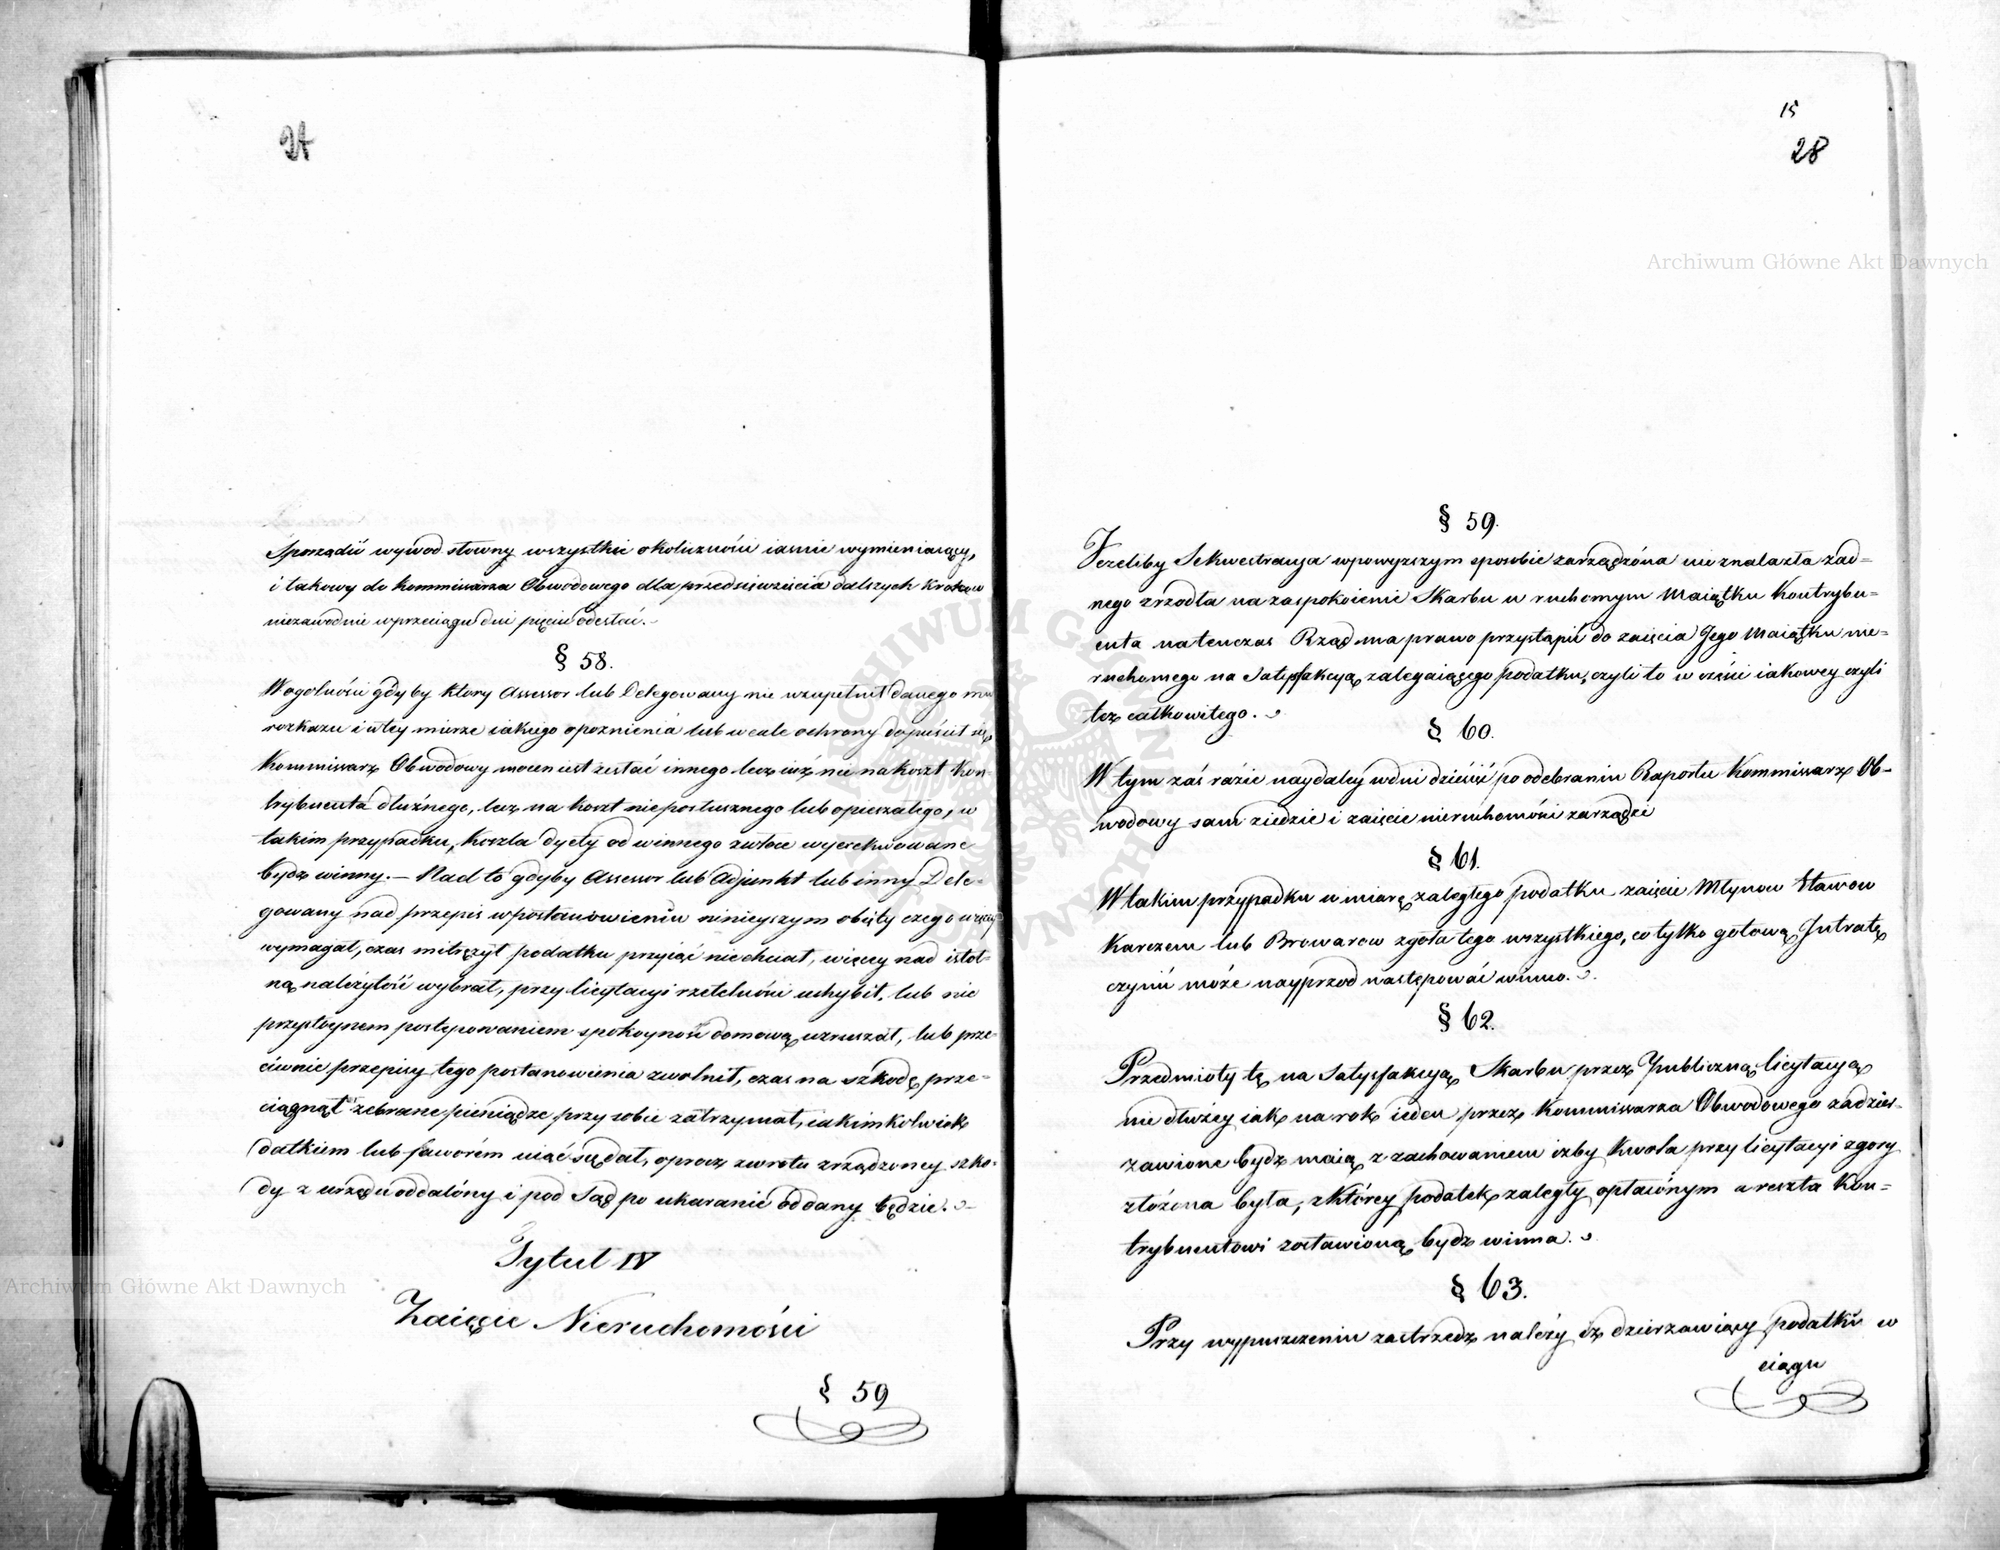 24
Sporządzić wywod słowny wszystkie okoliczności iasnie wymieniaiący,
i takowy do Kommissarza Obwodowego dla przedsięwzięcia dalszych Krokow
niezawodnie w przeciągu dni pięciu odesłać. –
§ 58.
W ogolności gdyby ktory Assessor lub Delegowany nie uzupełnił danego mu
rozkazu i w tey mierze iakiego opoznienia lub wcale ochrony dopuścił się,
Kommissarz Obwodowy mocen iest zesłać innego lecz iuż nie na koszt Kon
trybuenta dłużnego, lecz na koszt nieposłusznego lub opieszałego, w
takim przypadku, koszta dyety od winnego zwłoce wyexekwowane
bydz winny. – Nad to gdyby Assessor lub Adjunkt lub inny Dele-
gowany nad przepis w postanowieniu ninieyszym obięty czego więcey
wymagał, czas mitrężył podatku przyiąć nie chciał, więcey nad istot-
ną należytość wybrał, przy licytacyi rzetelności uchybił, lub nie
przystoynem postępowaniem spokoyność domową wzruszał, lub prze-
ciwnie przepisy tego postanowienia zwolnił, czas na szkodę prze-
ciągnął zebrane pieniądze przy sobie zatrzymał, iakimkolwiek
datkiem lub faworem uiąć się dał, oprocz zwrotu zrządzoney szko-
dy z urzędu oddalony i pod Sąd po ukaranie oddany będzie. –
Tytuł IV
Zaięcie Nieruchomości
§ 59
15
28
§ 59.
Jeżeliby Sekwestracya w powyższym sposobie zarządzona nie znalazła żad-
nego zrzodła na zaspokoienie Skarbu w ruchomym Maiątku Kontrybu-
enta natenczas Rząd ma prawo przystąpić do zaięcia Jego Maiątku nie-
ruchomego na Satysfakcyą zalegaiącego podatku, czyli to w części iakowey czyli
też całkowitego.
§ 60.
W tym zaś razie naydaley w dni dziesięć po odebraniu Raportu Kommissarz Ob-
wodowy sam ziedzie i zaięcie nieruchomości zarządzi
§ 61.
W takim przypadku w miarę zaległego podatku zaięcie Młynow Stawow
Karczem lub Browarow zgoła tego wszystkiego, co tylko gotową Intratę
czynić może nayprzod następować winno.
§ 62.
Przedmioty te na Satysfakcyą Skarbu przez Publiczną licytacyą
nie dłużey iak na rok ieden przez Kommissarza Obwodowego zadzier-
zawione bydz maią z zachowaniem izby kwota przy licytacyi z gory
złożona była, z ktorey podatek zaległy opłaconym a reszta Kon-
trybuentowi zostawioną bydz winna.
§ 63.
Przy wypuszczeniu zastrzedz należy iż dzierzawiący podatki w
ciągu
Archiwum Główne Akt Dawnych
Archiwum Główne Akt Dawnych